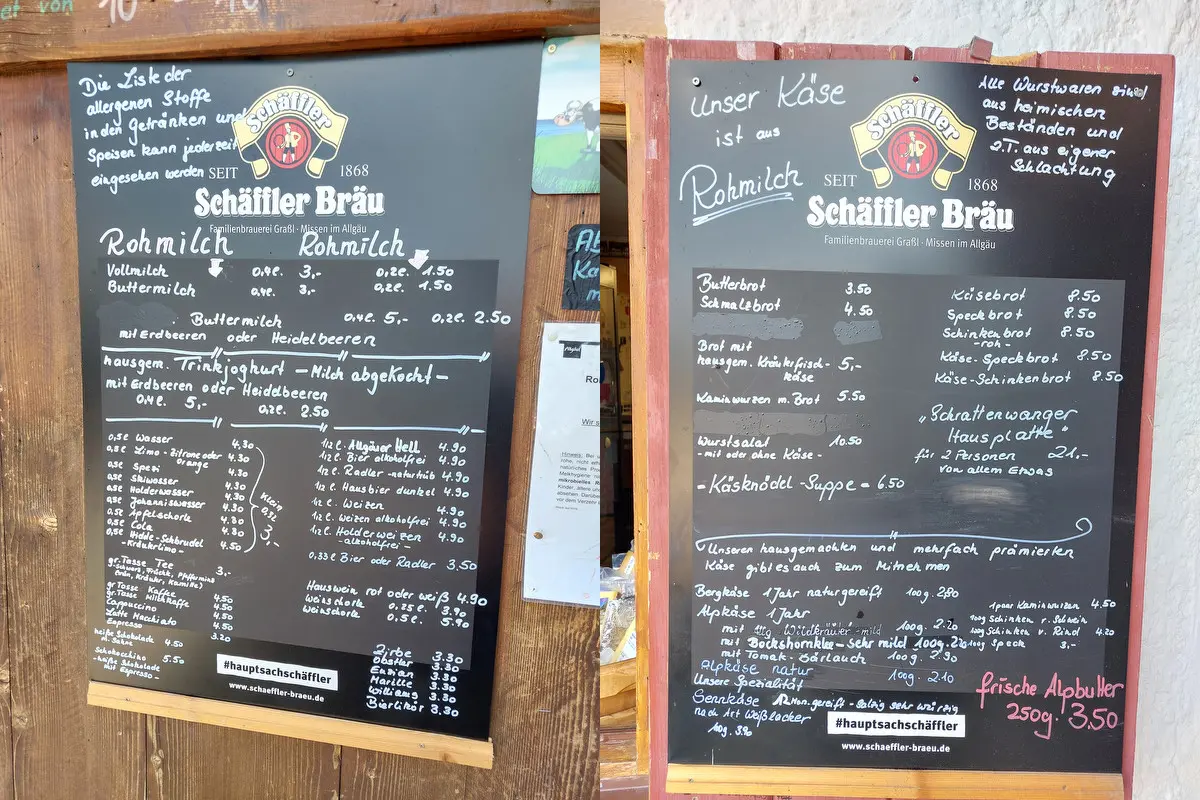 Die Liste der
allergenen Stoffe
in den Getränken und
Speisen kann jederzeit
eingesehen werden
Schäffler
SEIT 1868
Schäffler Bräu
Familienbrauerei Graßl · Missen im Allgäu
Rohmilch Rohmilch
Vollmilch 0,4l. 3,- 0,2l. 1.50
Buttermilch 0,4l. 3,- 0,2l. 1.50
Buttermilch 0,4l. 5,- 0,2l. 2.50
mit Erdbeeren oder Heidelbeeren
hausgem. Trinkjoghurt - Milch abgekocht -
mit Erdbeeren oder Heidelbeeren
0,4l. 5,- 0,2l. 2.50
0,5l Wasser 4.30
0,5l. Limo - Zitrone oder 4.30
Orange
0,5l Spezi 4.30
0,5l Skiwasser 4.30
0,5l Holderwasser 4.30
0,5l Johanniswasser 4.30
0,5l Apfelschorle 4.30
0,5l Cola 4.30
0,5l Hidde-Schbrudel 4.50
- Kräuterlimo -
Klein
0,2l
3,-
1/2 l. Allgäuer Hell 4.90
1/2 l. Bier alkoholfrei 4.90
1/2 l. Radler - naturtrüb 4.90
1/2 l. Hausbier dunkel 4.90
1/2 l. Weizen 4.90
1/2 l. Weizen alkoholfrei 4.90
1/2 l. Holderweizen 4.90
- alkoholfrei -
0,33l Bier oder Radler 3,50
gr. Tasse Tee 3,-
(-Schwarz, Früchte, Pfefferminz
Grün, Kräuter, Kamille)
gr Tasse Kaffee 4.50
gr. Tasse Milchkaffe 4.50
Cappuccino 4.50
Latte Macchiato 4.50
Espresso 3.20
heiße Schokolade
m. Sahne 4.50
Schokocchino 5.50
- heiße Schokolade
mit Espresso -
Hauswein rot oder weiß 4.90
Weinschorle 0,25l. 3.90
Weinschorle 0,5l. 5.90
Zirbe 3.30
Obstler 3.30
Enzian 3.30
Marille 3.30
Williams 3.30
Bierlikör 3.30
#hauptsachschäffler
www.schaeffler-braeu.de
Unser Käse
ist aus
Rohmilch
Schäffler
SEIT 1868
Schäffler Bräu
Familienbrauerei Graßl · Missen im Allgäu
Alle Wurstwaren sind
aus heimischen
Beständen und
z.T. aus eigener
Schlachtung
Butterbrot 3.50
Schmalzbrot 4.50
Brot mit
hausgem. Kräuterfrisch- 5,-
käse
Kaminwurzen m. Brot 5.50
Wurstsalat 10.50
- mit oder ohne Käse -
- Käsknödel - Suppe - 6.50
Käsebrot 8.50
Speckbrot 8.50
Schinkenbrot 8.50
- roh -
Käse-Speckbrot 8.50
Käse-Schinkenbrot 8.50
„Schrattenwanger
Hausplatte"
für 2 Personen 21,-
von allem Etwas
Unseren hausgemachten und mehrfach prämierten
Käse gibt es auch zum Mitnehmen
Bergkäse 1 Jahr naturgereift 100g. 2.80
Alpkäse 1 Jahr
mit Wildkräuter - mild 100g. 2.20
mit Bockshornklee - Sehr mild 100g.
mit Tomate - Bärlauch 100g. 2.90
Alpkäse natur 100g. 2.10
Unsere Spezialität
Sennkäse 12 Mon. gereift - Salzig sehr würzig
nach Art Weißlacker
100g. 3.90
1 paar Kaminwurzen 4.50
100g Schinken v. Schwein
100g Schinken v. Rind 4.20
100g Speck 3,-
frische Alpbutter
250g. 3.50
#hauptsachschäffler
www.schaeffler-braeu.de